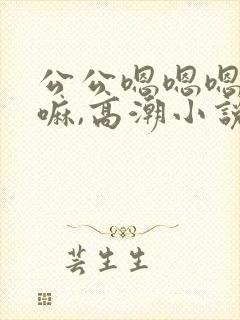 公公嗯嗯嗯
嘛,高潮小説
芸生生